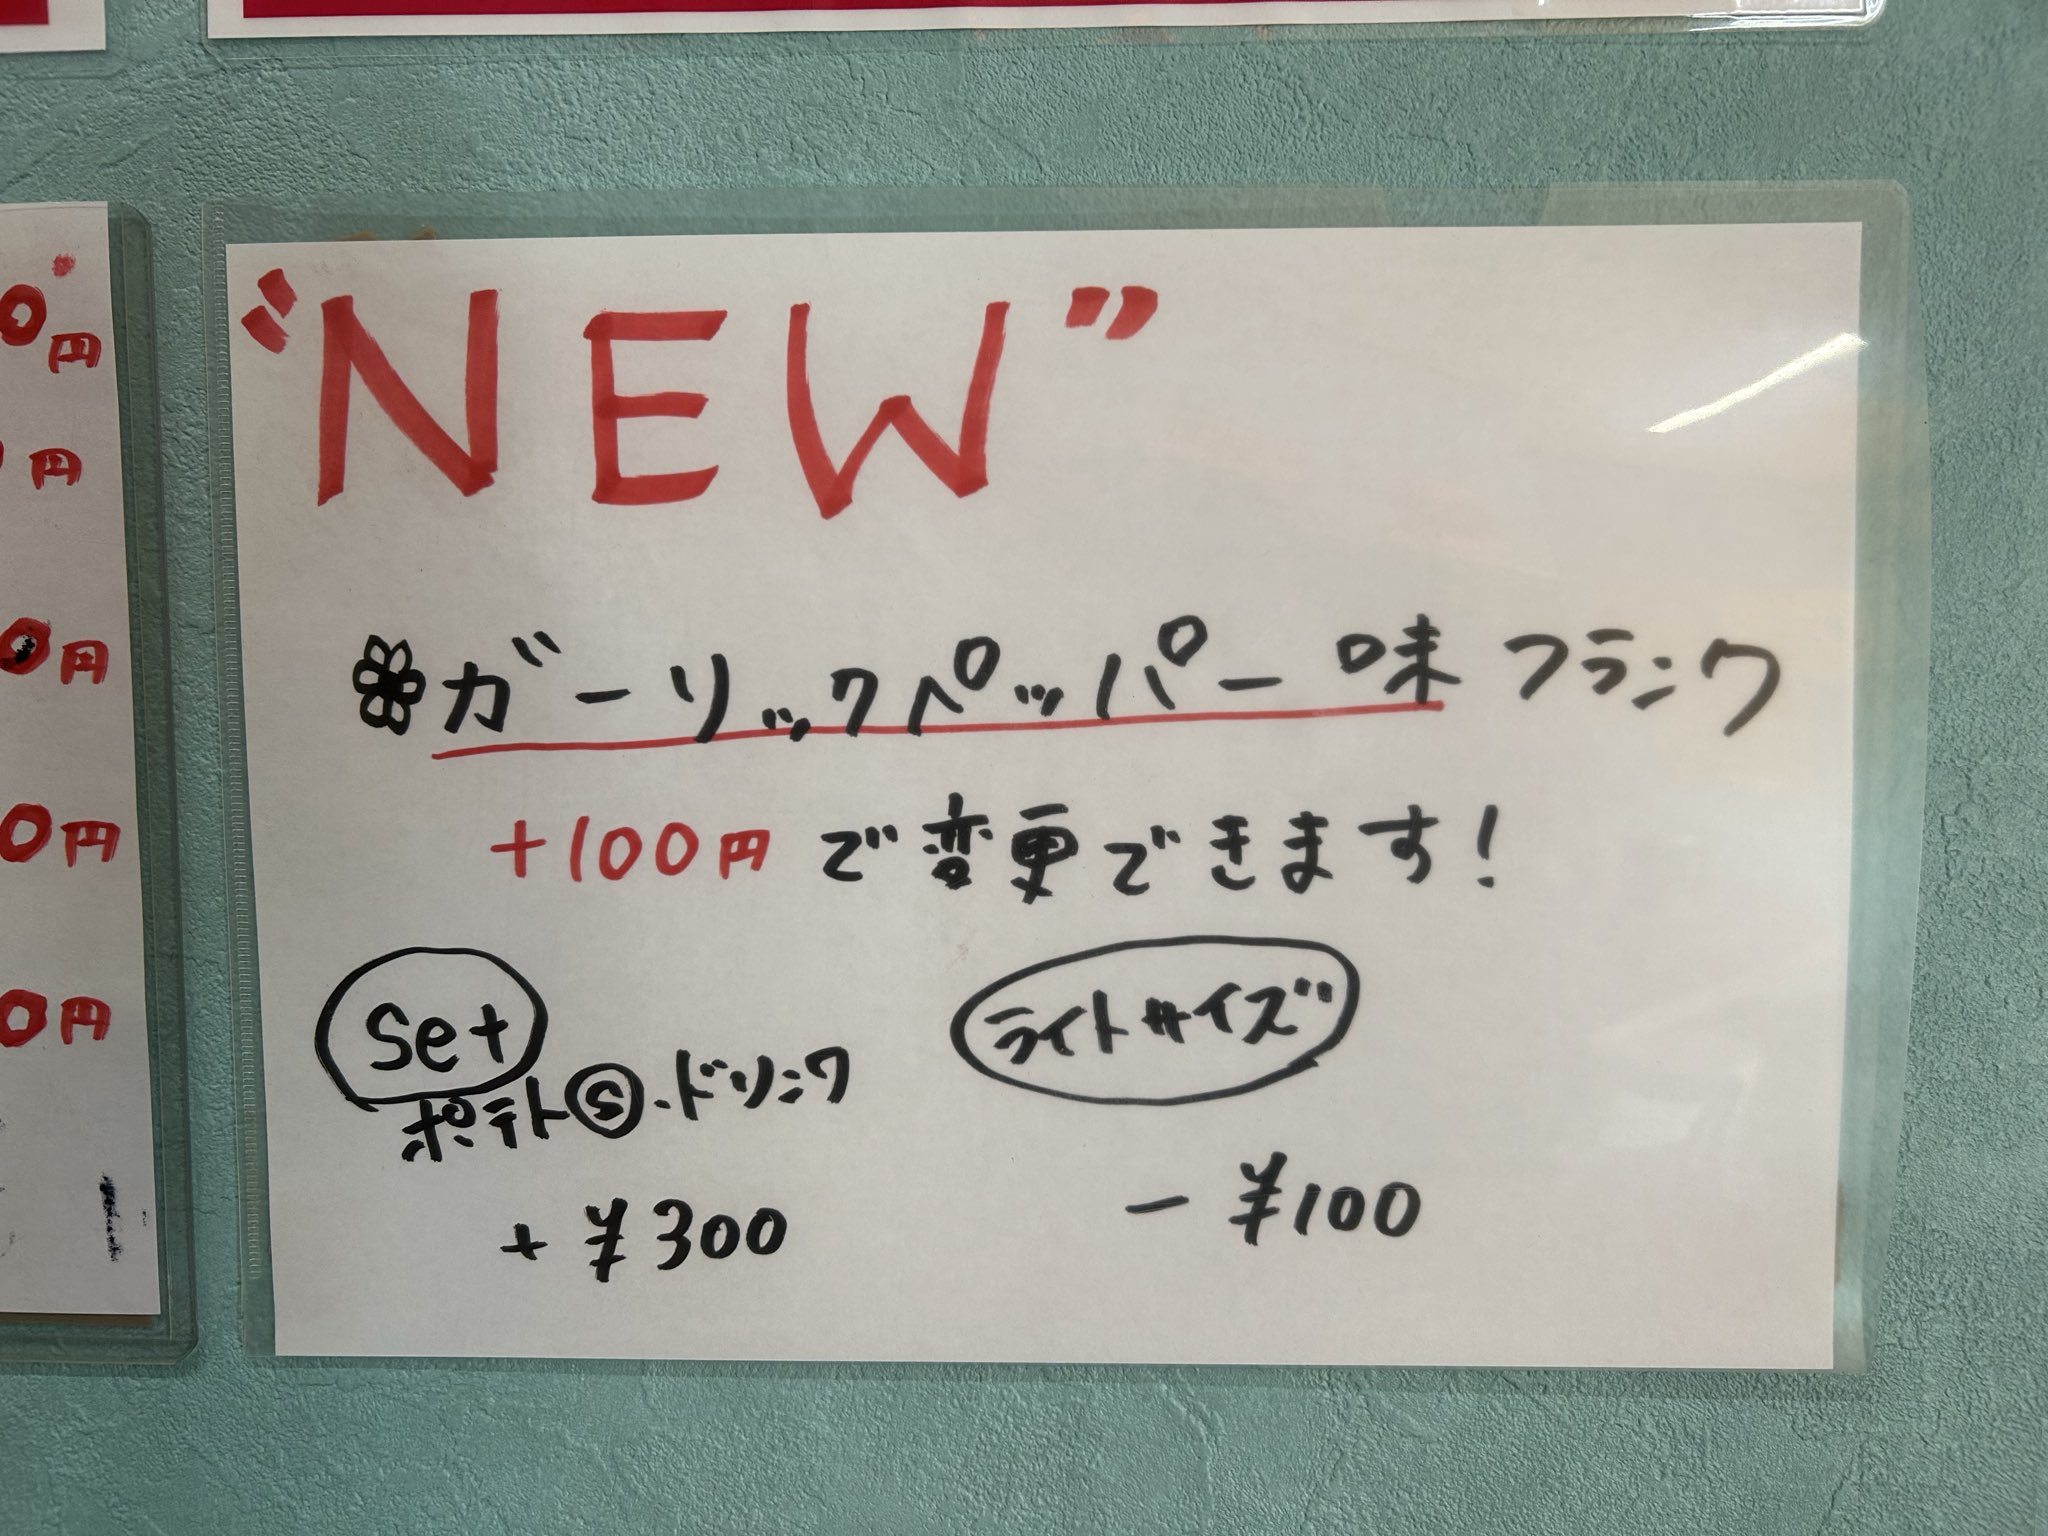 "NEW"
ガーリックペッパー味フランク
+100円で変更できます!
Set
ポテトⓈ・ドリンク
+¥300
ライトサイズ
-¥100
0円
円
0円
0円
0円